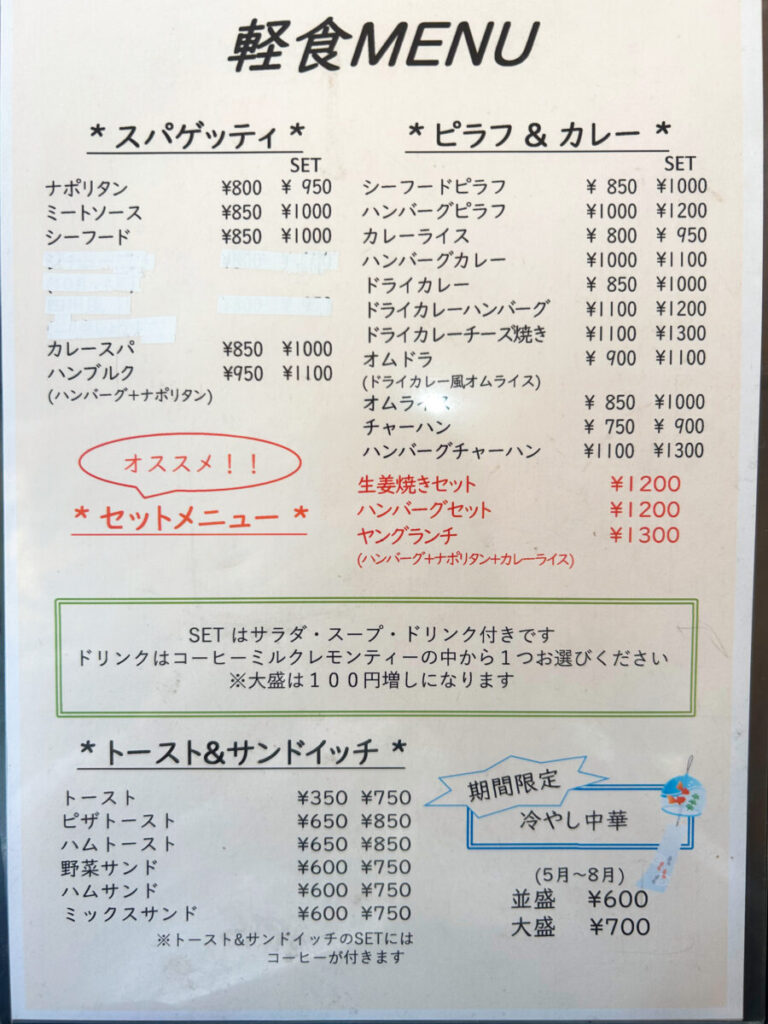 軽食MENU
* スパゲッティ *
SET
ナポリタン ¥800 ¥ 950
ミートソース ¥850 ¥1000
シーフード ¥850 ¥1000
カレースパ ¥850 ¥1000
ハンブルク ¥950 ¥1100
(ハンバーグ+ナポリタン)
オススメ！！
* セットメニュー *
* ピラフ & カレー *
SET
シーフードピラフ ¥ 850 ¥1000
ハンバーグピラフ ¥1000 ¥1200
カレーライス ¥ 800 ¥ 950
ハンバーグカレー ¥1000 ¥1100
ドライカレー ¥ 850 ¥1000
ドライカレーハンバーグ ¥1100 ¥1200
ドライカレーチーズ焼き ¥1100 ¥1300
オムドラ ¥ 900 ¥1100
(ドライカレー風オムライス)
オムライス ¥ 850 ¥1000
チャーハン ¥ 750 ¥ 900
ハンバーグチャーハン ¥1100 ¥1300
生姜焼きセット ¥1200
ハンバーグセット ¥1200
ヤングランチ ¥1300
(ハンバーグ+ナポリタン+カレーライス)
SET はサラダ・スープ・ドリンク付きです
ドリンクはコーヒーミルクレモンティーの中から１つお選びください
※大盛は１００円増しになります
* トースト&サンドイッチ *
トースト ¥350 ¥750
ピザトースト ¥650 ¥850
ハムトースト ¥650 ¥850
野菜サンド ¥600 ¥750
ハムサンド ¥600 ¥750
ミックスサンド ¥600 ¥750
※トースト&サンドイッチのSETには
コーヒーが付きます
期間限定
冷やし中華
(5月～8月)
並盛 ¥600
大盛 ¥700